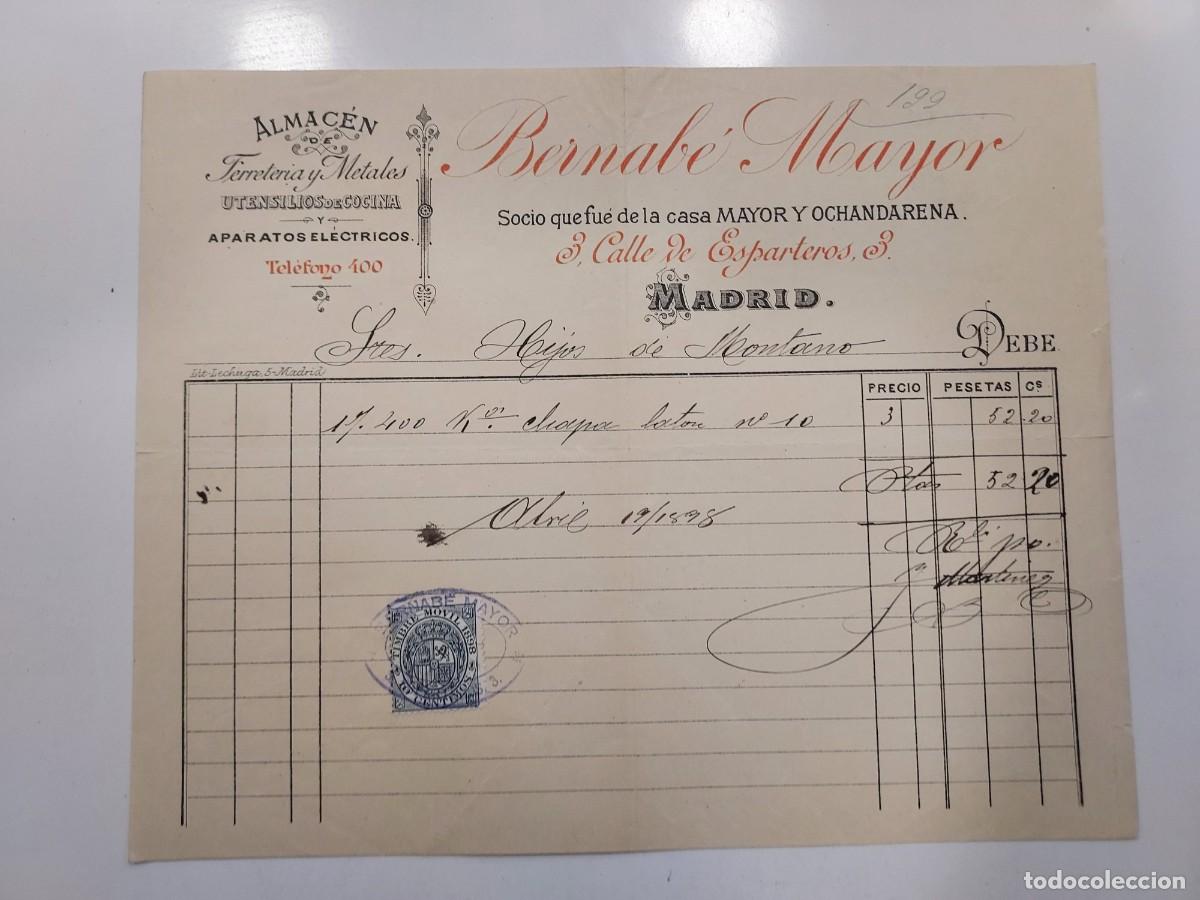 199
ALMACÉN
DE
Ferretería y Metales
UTENSILIOS DE COCINA
Y
APARATOS ELÉCTRICOS.
Teléfono 400
Bernabé Mayor
Socio que fué de la casa MAYOR Y OCHANDARENA.
3, Calle de Esparteros, 3.
MADRID.
Sres. Hijos de Montano
DEBE
Lit. Lechuga, 5-Madrid
PRECIO PESETAS Cs
17.400 Kos. chapa laton nº 10 3 52.20
Ptas 52.20
Abril 19/1898
Rbi po.
Martinez
BERNABÉ MAYOR
TIMBRE MOVIL 1898
10 CENTIMOS
todocoleccion